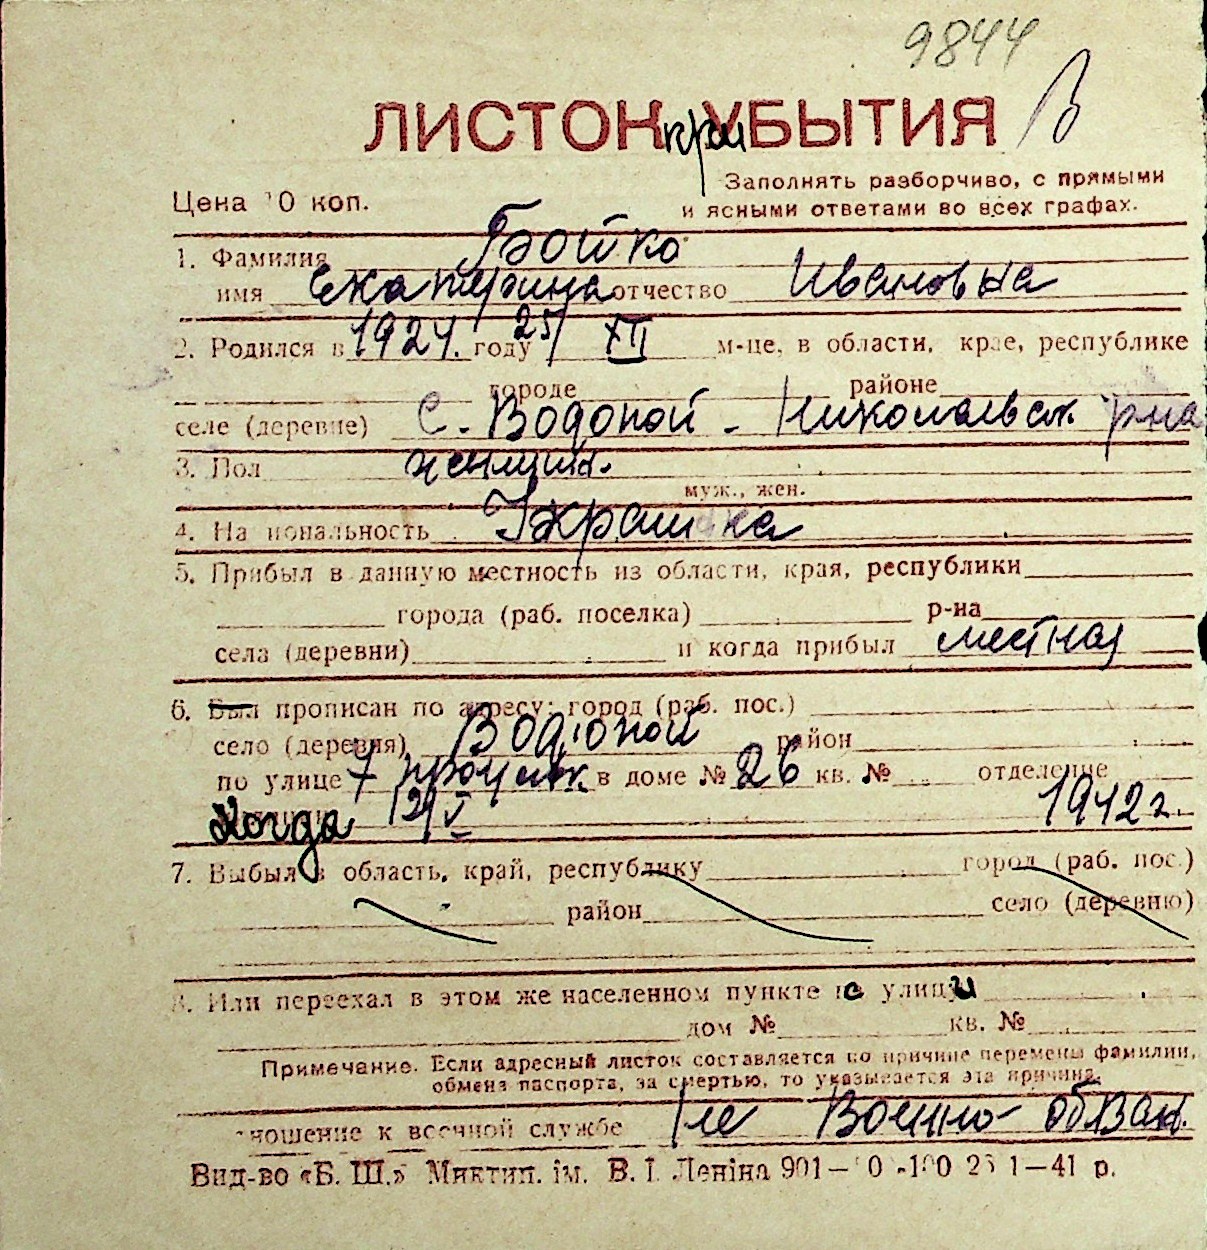 9844
ЛИСТОК при УБЫТИЯ
Заполнять разборчиво, с прямыми
Цена 10 коп. и ясными ответами во всех графах.
1. Фамилия Бойко
имя Екатерина отчество Ивановна
2. Родился в 1924. году 25/XII м-це, в области, крае, республике
городе районе
селе (деревне) с. Водопой - Николаевск. р-на
3. Пол женщин.
муж., жен.
4. Национальность Украинка
5. Прибыл в данную местность из области, края, республики
города (раб. поселка) р-на
села (деревни) и когда прибыл местная
6. Был прописан по адресу: город (раб. пос.)
село (деревня) Водопой район
по улице 7 в доме № 26 кв. № отделение
Когда 12/V 1942 г.
7. Выбыл в область, край, республику город (раб. пос.)
район село (деревню)
8. Или переехал в этом же населенном пункте с улицы
дом № кв. №
Примечание. Если адресный листок составляется по причине перемены фамилии,
обмена паспорта, за смертью, то указывается эта причина.
ношение к военной службе Не военно-обязан.
Вид-во «Б. Ш.» Миктип. ім. В. І. Леніна 901— 1—41 р.